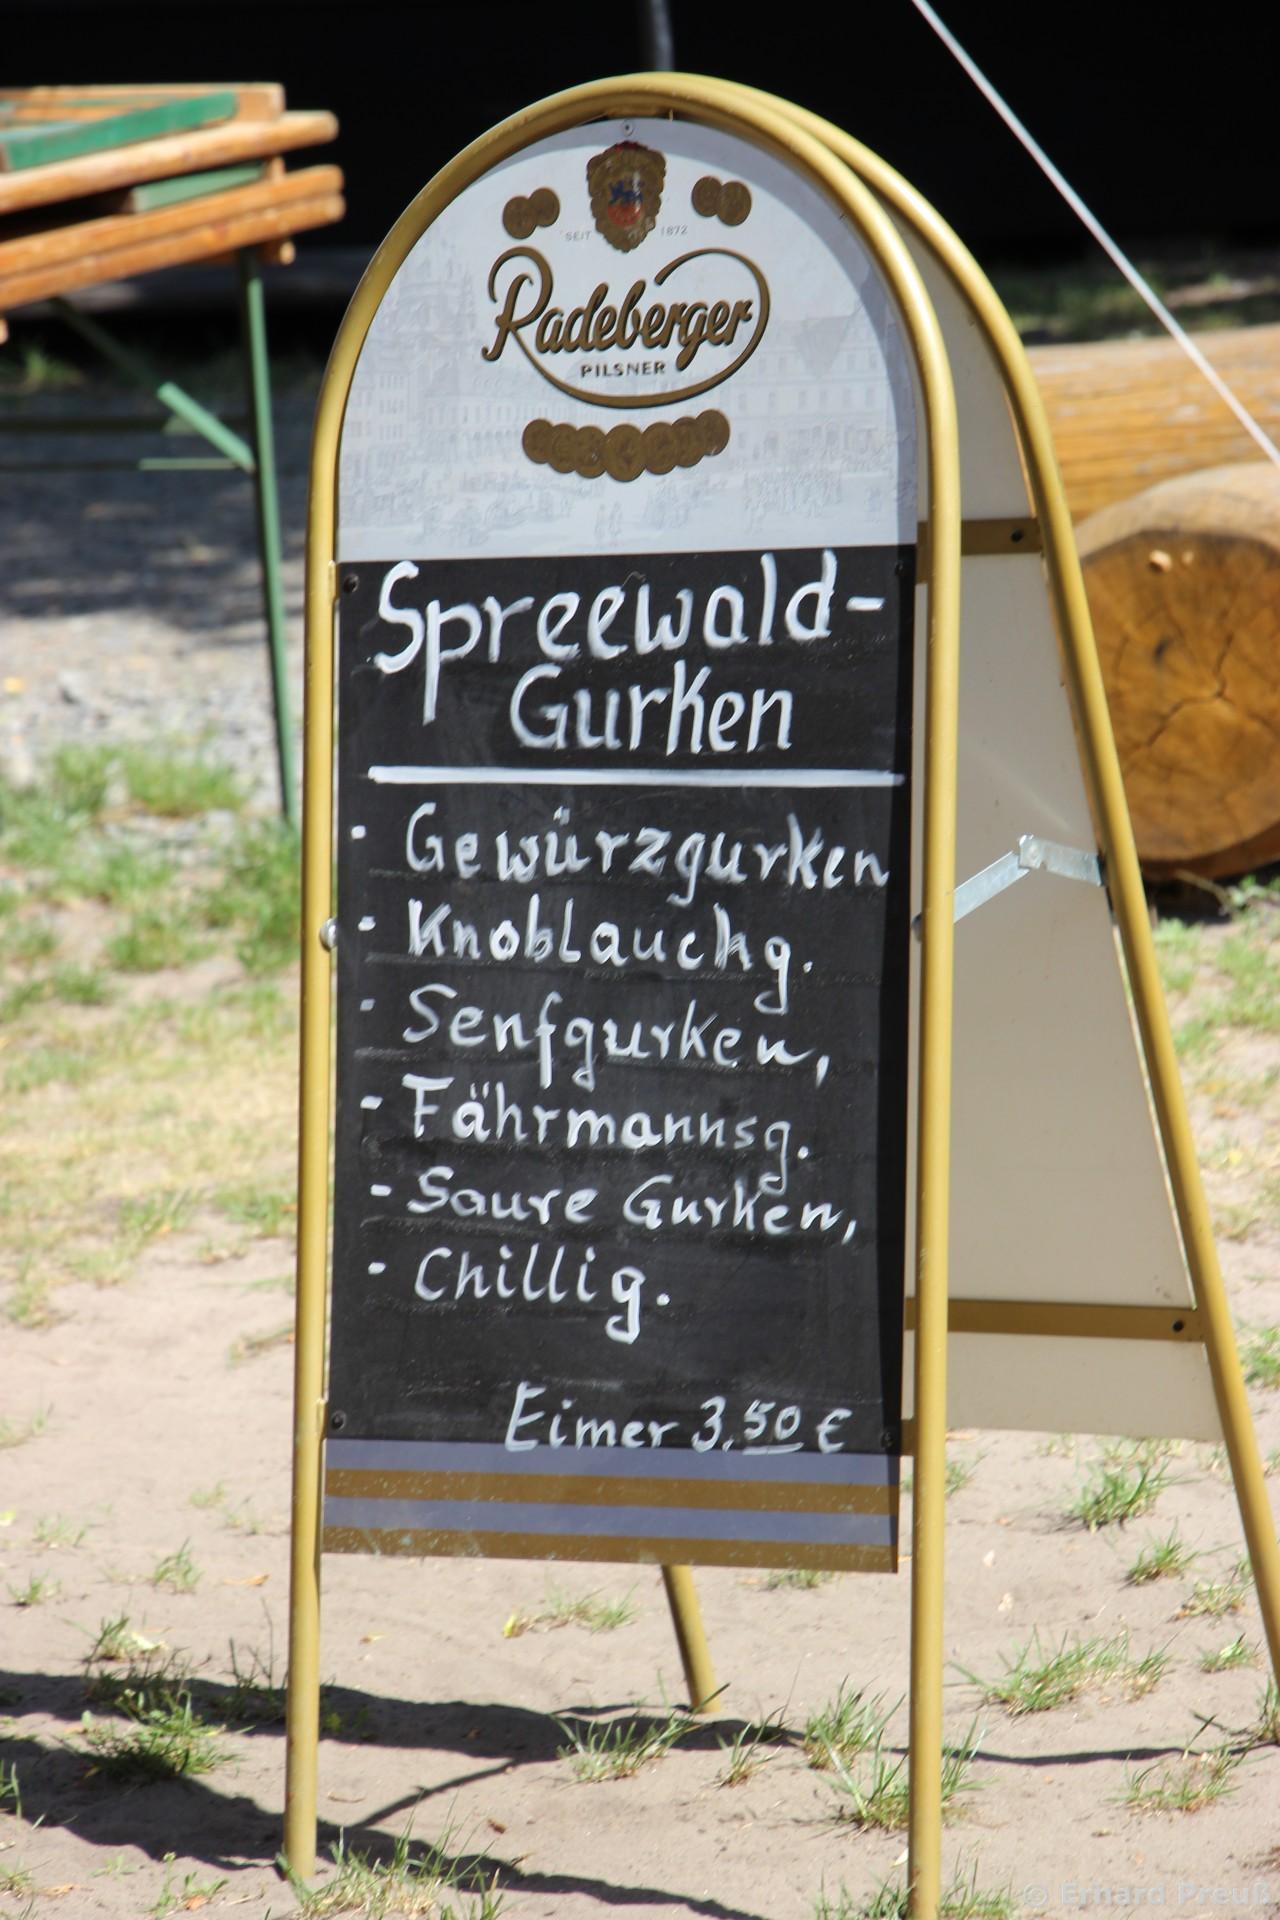 SEIT 1872
Radeberger
PILSNER
Spreewald-
Gurken
- Gewürzgurken
- Knoblauchg.
- Senfgurken,
- Fährmannsg.
- Saure Gurken,
- Chillig.
Eimer 3.50 €
© Erhard Preuß